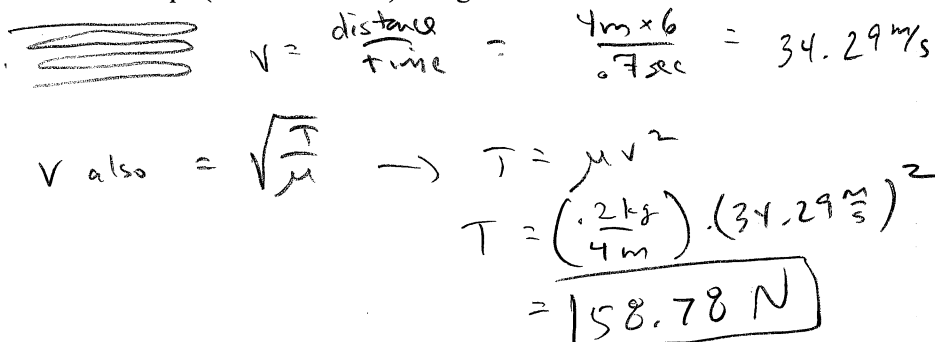 v = distance / time = 4m × 6 / .7 sec = 34.29 m/s
v also = √(T/μ) → T = μv²
T = (.2kg / 4m) · (34.29 m/s)²
= 58.78 N